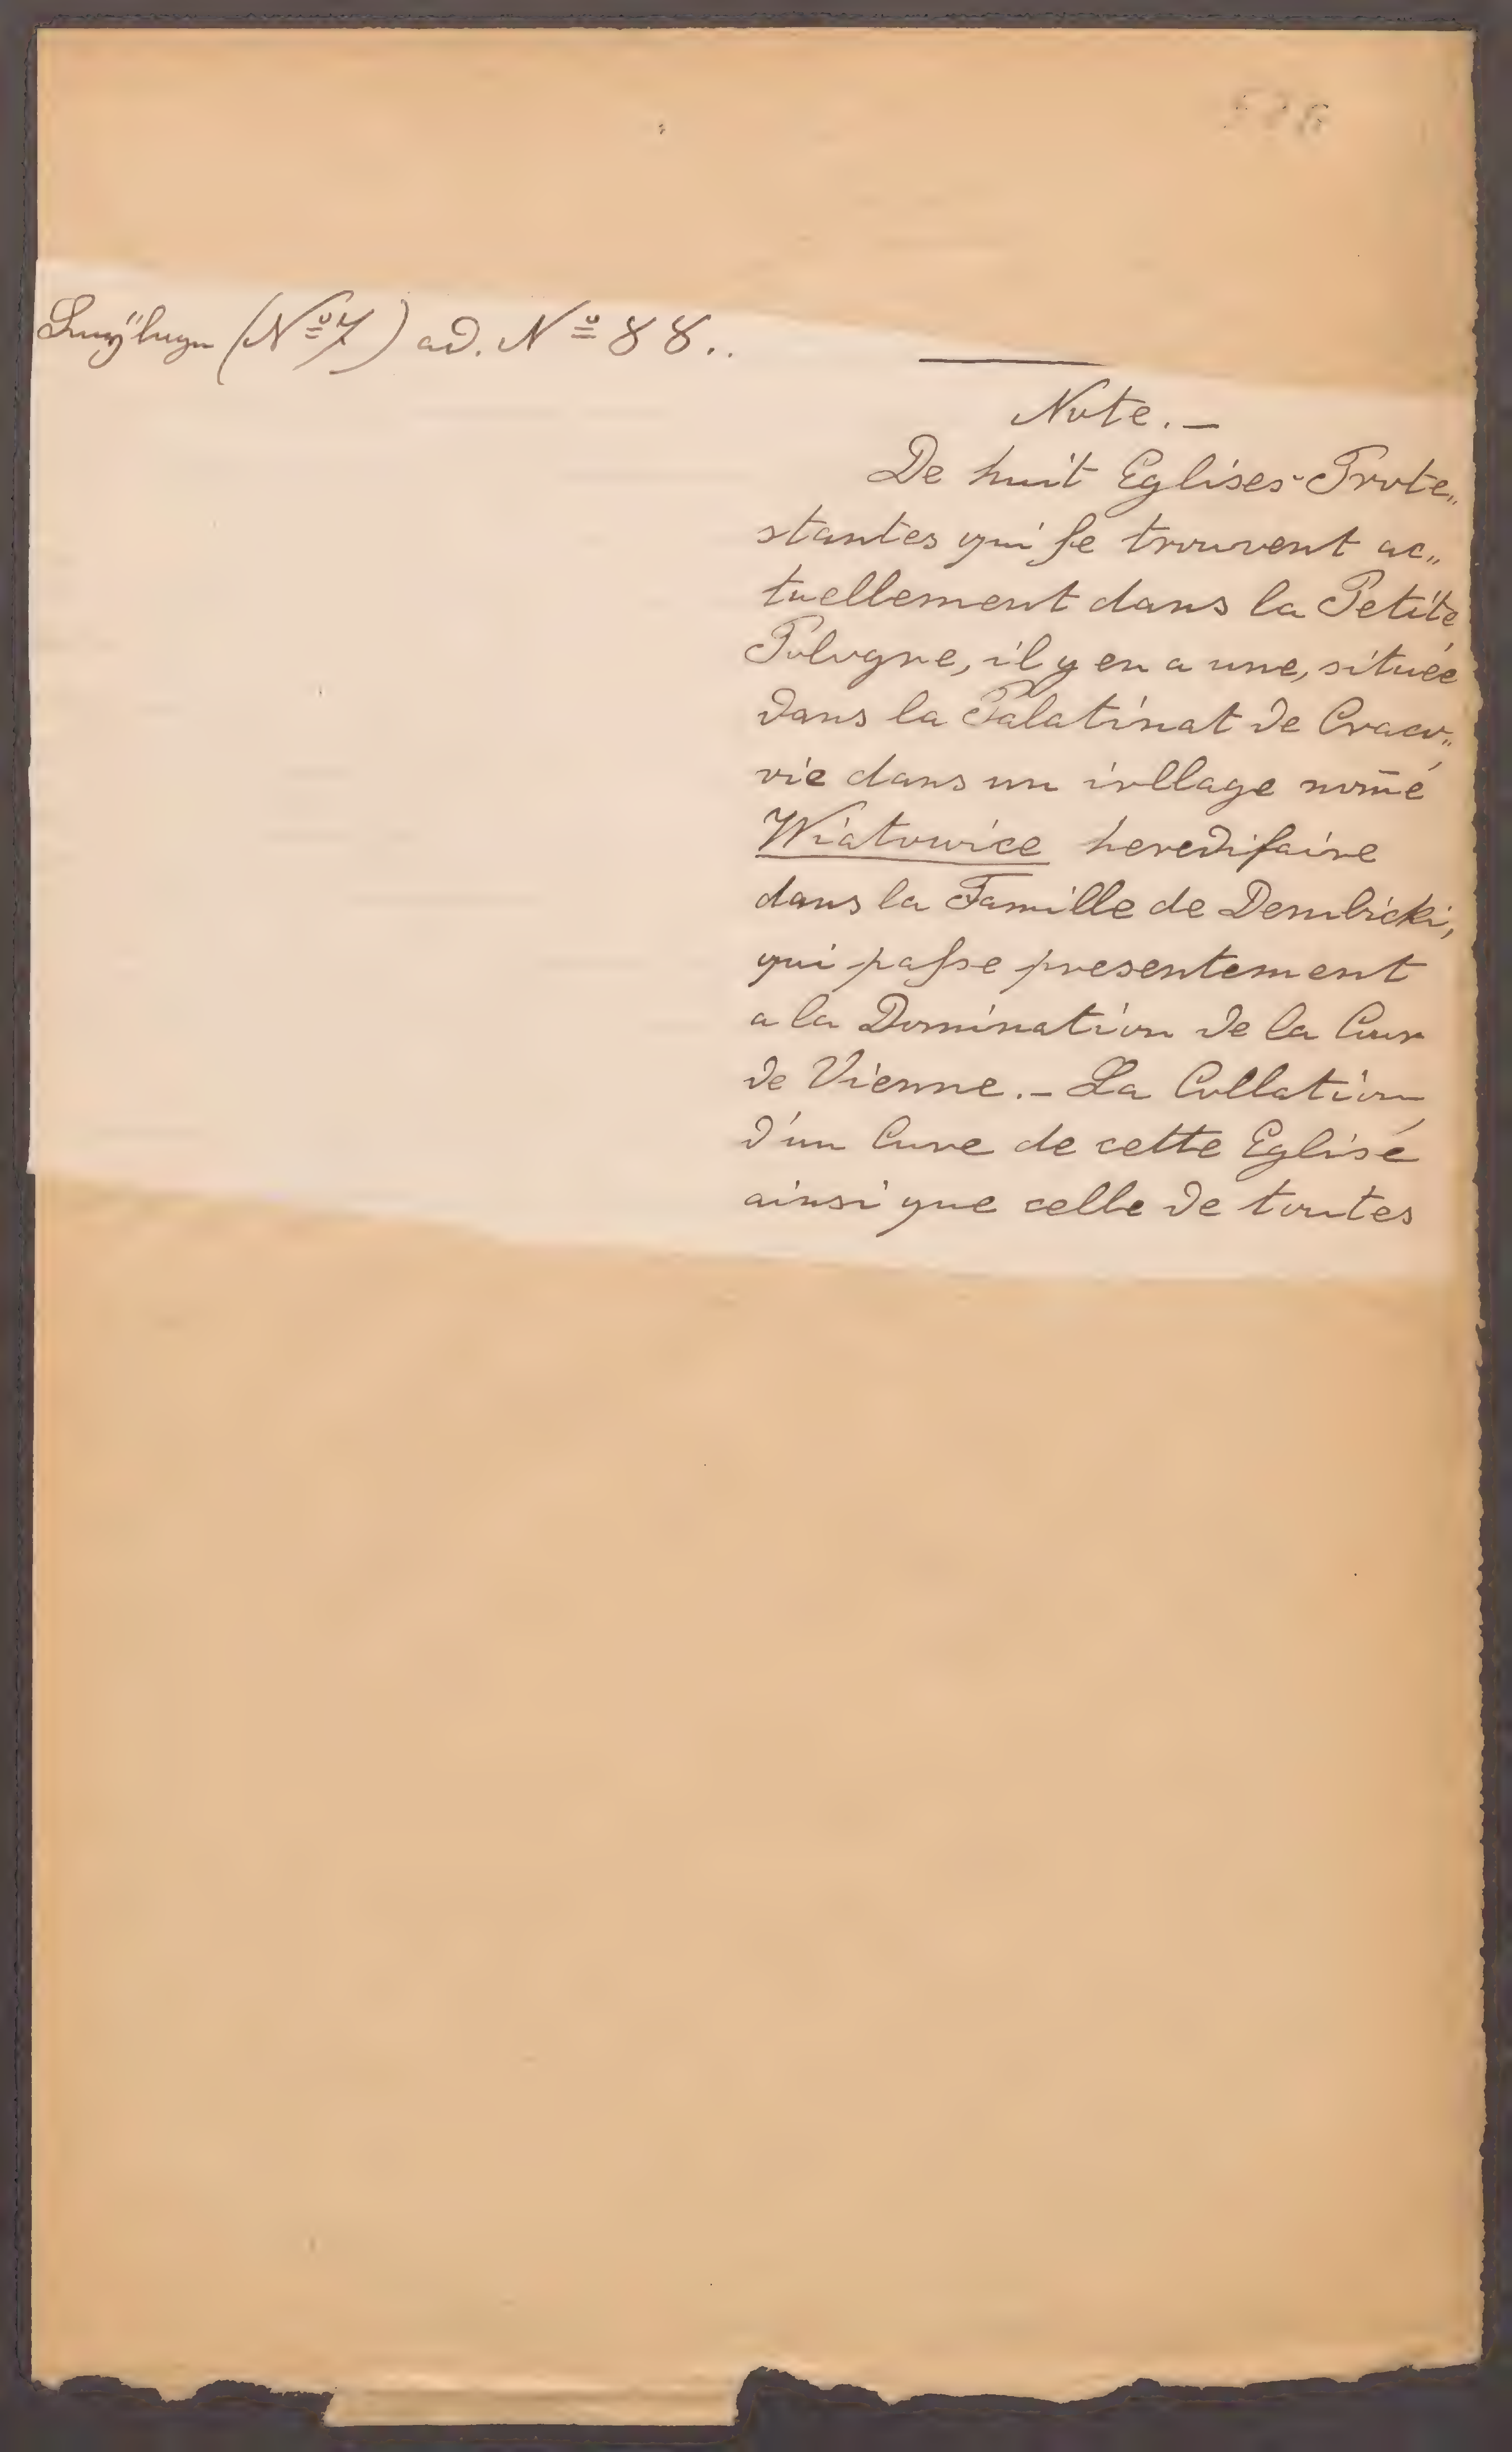 (Nº 7) ad. Nº 88..
Note.—
De huit Eglises Prote„
stantes qui se trouvent ac„
tuellement dans la Petite
Pologne, il y en a une, située
dans la Palatinat de Craco„
vie dans un village nom̄é
Wiatowice hereditaire
dans la Famille de Dembicki,
qui passe presentement
a la Domination de la Cour
de Vienne.— La Collation
d'un Cure de cette Eglise
ainsi que celle de toutes